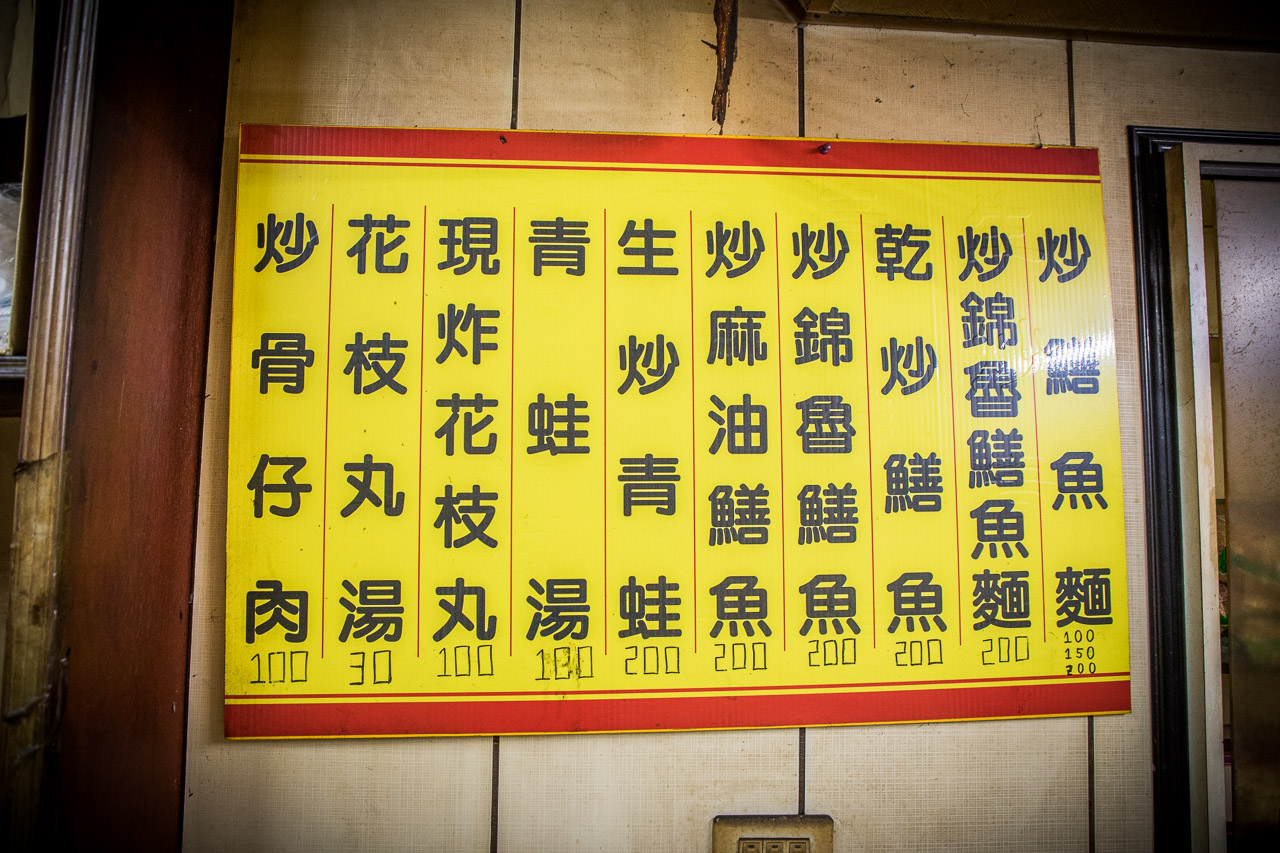 炒鱔魚麵
100
150
200
炒錦魯鱔魚麵
200
乾炒鱔魚
200
炒錦魯鱔魚
200
炒麻油鱔魚
200
生炒青蛙
200
青蛙湯
現炸花枝丸
100
花枝丸湯
30
炒骨仔肉
100